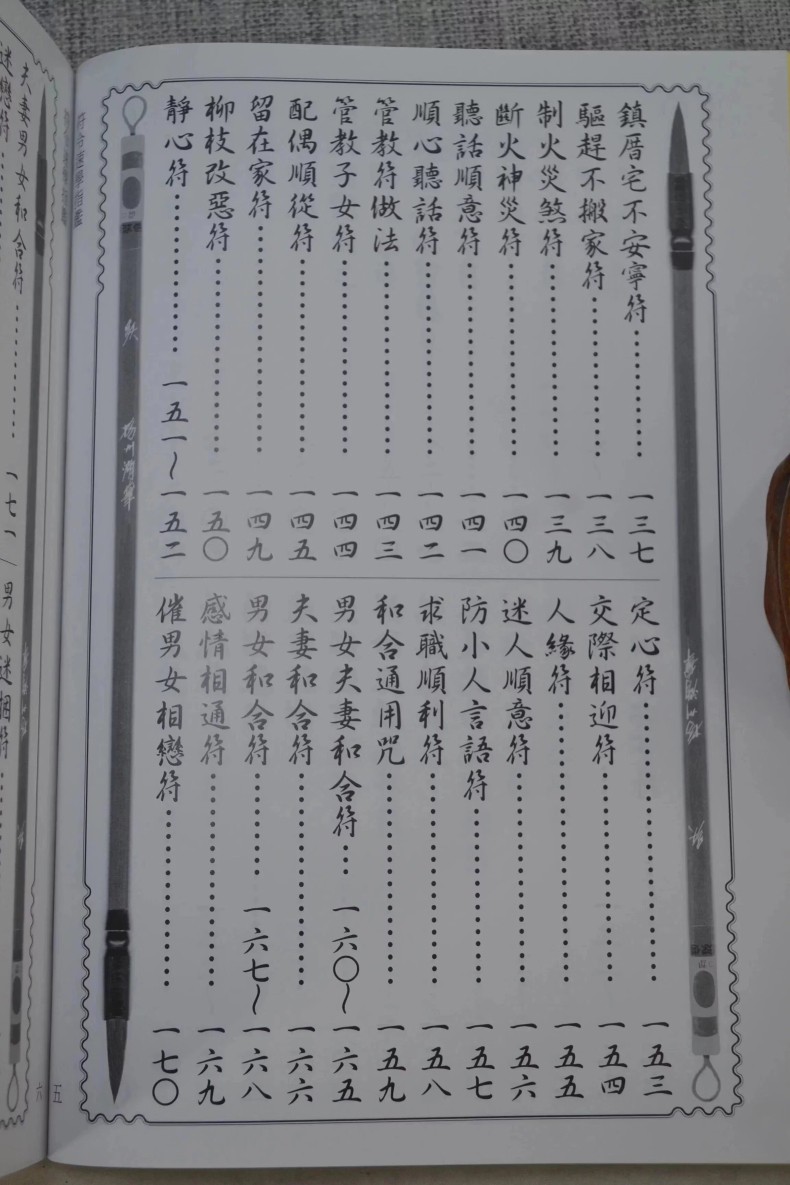 鎮厝宅不安寧符……………一三七
驅趕不搬家符……………一三八
制火災煞符……………一三九
斷火神災符……………一四〇
聽話順意符……………一四一
順心聽話符……………一四二
管教符做法……………一四三
管教子女符……………一四四
配偶順從符……………一四五
留在家符……………一四九
柳枝改惡符……………一五〇
靜心符……………一五一～一五二
定心符……………一五三
交際相迎符……………一五四
人緣符……………一五五
迷人順意符……………一五六
防小人言語符……………一五七
求職順利符……………一五八
和合通用咒……………一五九
男女夫妻和合符…一六〇～一六五
夫妻和合符……………一六六
男女和合符……一六七～一六八
感情相通符……………一六九
催男女相戀符……………一七〇
五
夫妻男女和合符…………一七一
男女迷捆符
迷戀符
六